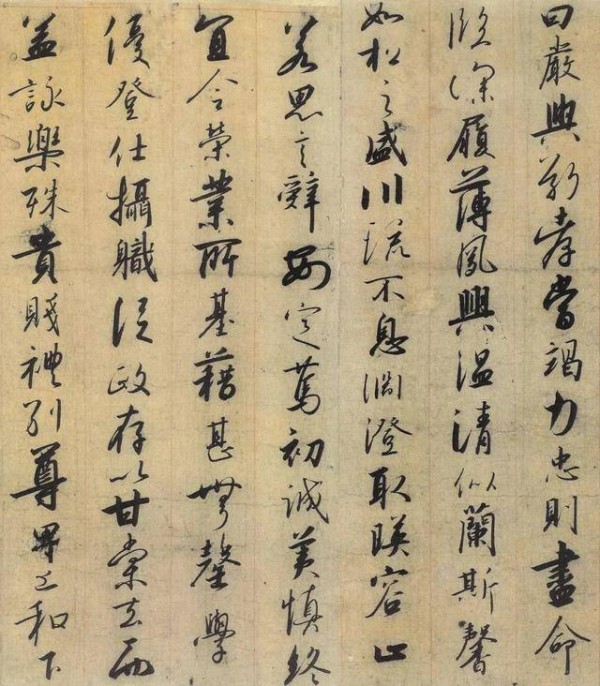 曰嚴與敬孝當竭力忠則盡命
臨深履薄夙興温清似蘭斯馨
如松之盛川流不息淵澄取暎容止
若思言辭安定篤初誠美慎終
宜令榮業所基藉甚無竟學
優登仕攝職從政存以甘棠去而
益詠樂殊貴賤禮別尊卑上和下